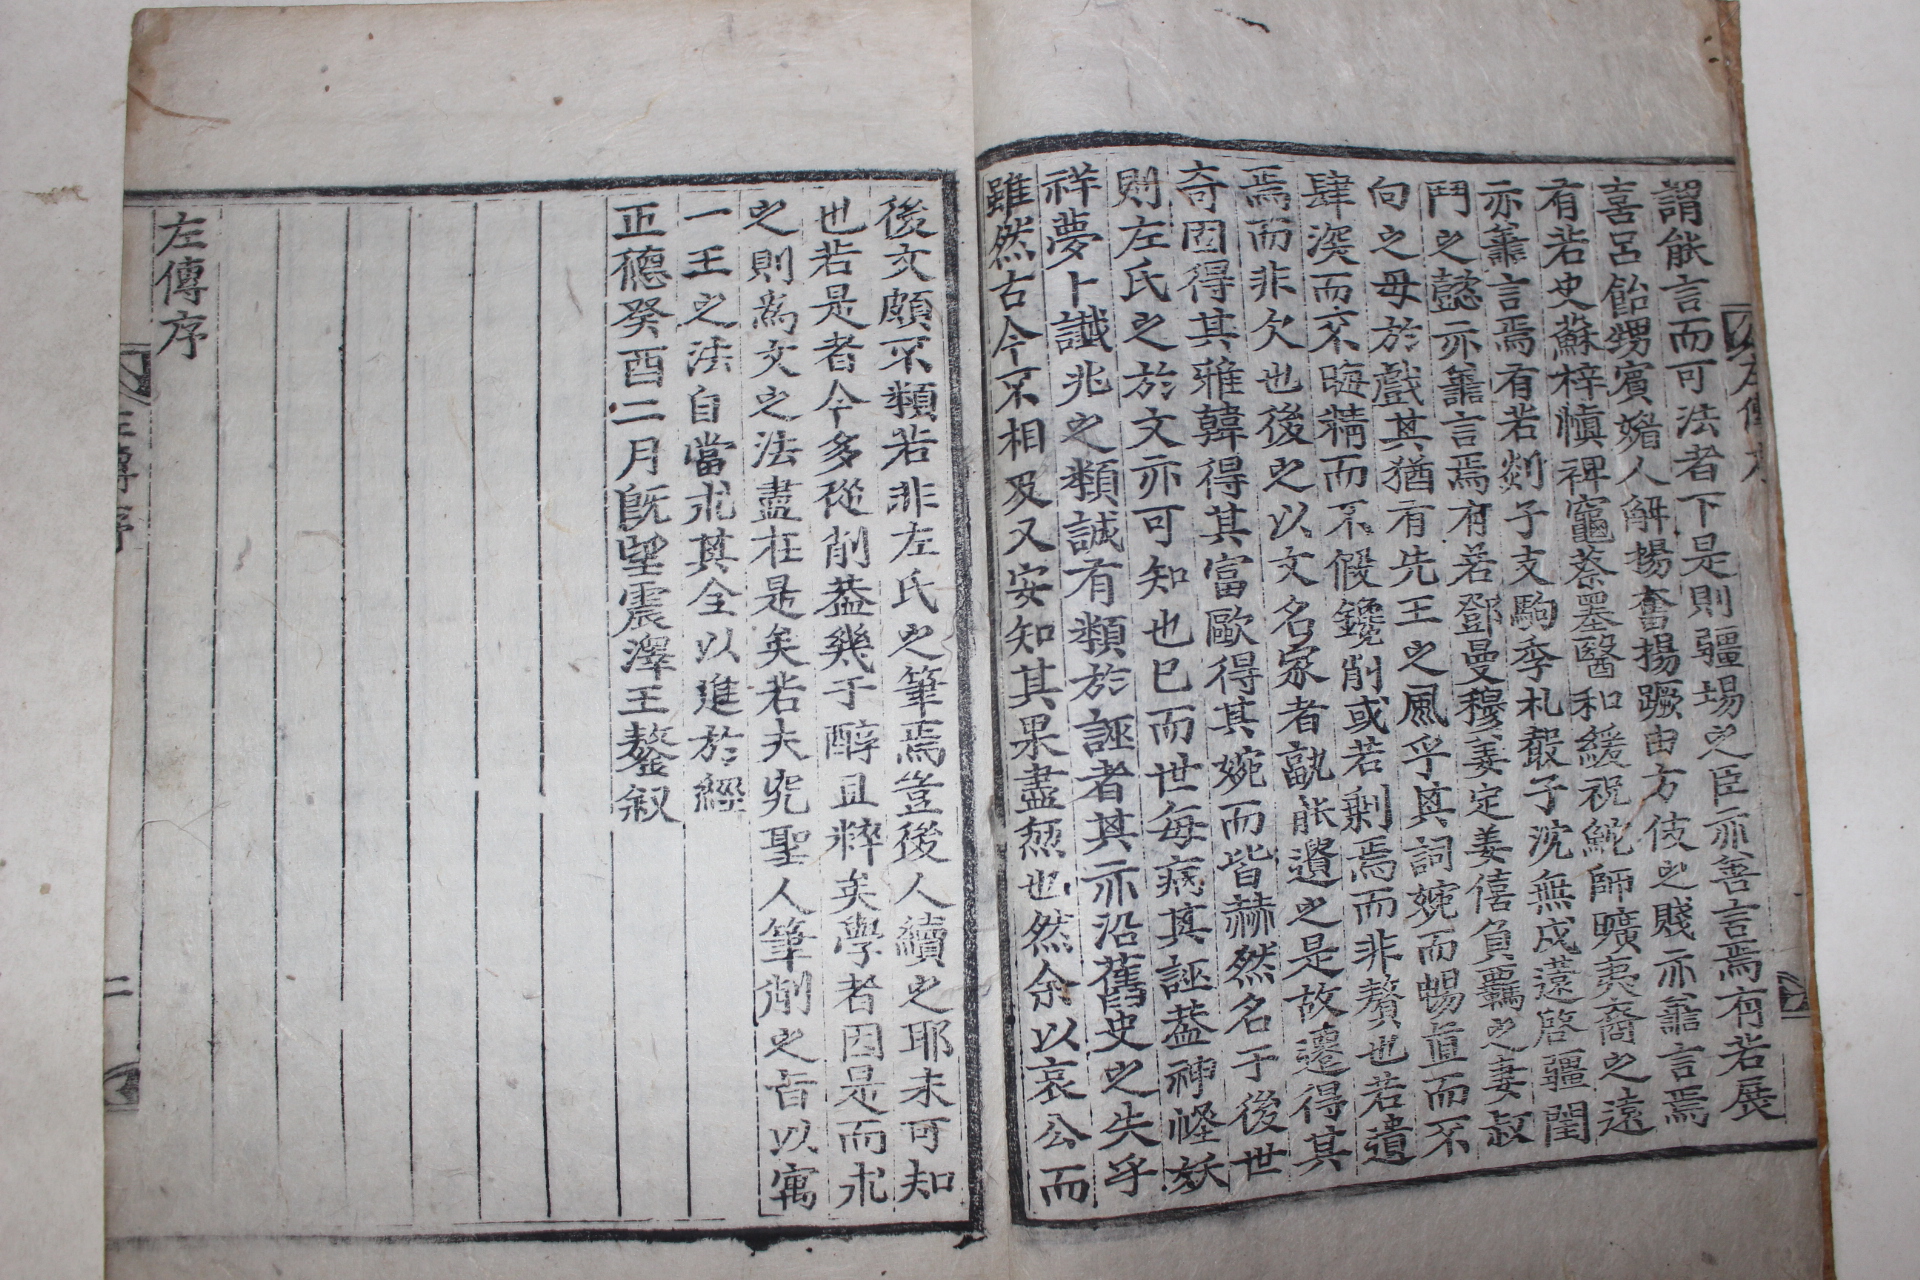 謂能言而可法者下是則疆埸之臣亦善言焉有若展
喜呂飴甥賓媚人解揚奮揚蹶由方伎之賤亦善言焉
有若史蘇梓愼裨竈蔡墨醫和緩祝鮀師曠夷裔之遠
亦善言焉有若剡子支駒季札聲子沈無戍薳啓疆閨
門之懿亦善言焉有若鄧曼穆姜定姜僖負羈之妻叔
向之母於戲其猶有先王之風乎其詞婉而暢直而不
肆深而不晦精而不假鑱削或若剩焉而非贅也若遺
焉而非欠也後之以文名家者孰能遺之是故遷得其
奇固得其雅韓得其富歐得其婉而皆赫然名于後世
則左氏之於文亦可知也已而世每病其誣葢神怪妖
祥夢卜讖兆之類誠有類於誣者其亦沿舊史之失乎
雖然古今不相及又安知其果盡無也然余以哀公而
後文頗不類若非左氏之筆焉豈後人續之耶未可知
也若是者今多從削葢幾于醇且粹矣學者因是而求
之則爲文之法盡在是矣若夫究聖人筆削之旨以寓
一王之法自當求其全以進於經
正德癸酉二月旣望震澤王鏊叙
左傳序
左傳序
二